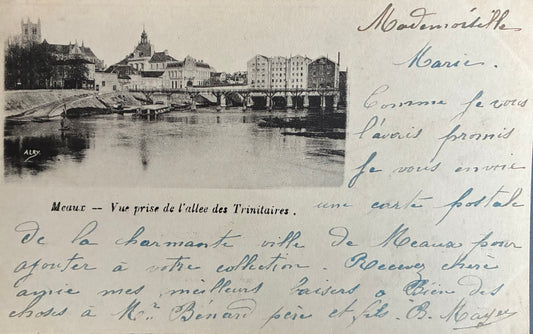 Mademoiselle
Marie.
Comme je vous
l'avais promis
je vous envoie
ALRY.
Meaux -- Vue prise de l'allee des Trinitaires.
une carte postale
de la charmante ville de Meaux pour
ajouter à votre collection. Recevez chère
amie mes meilleurs baisers a Bien des
choses à Mr Benard père et fils. B.